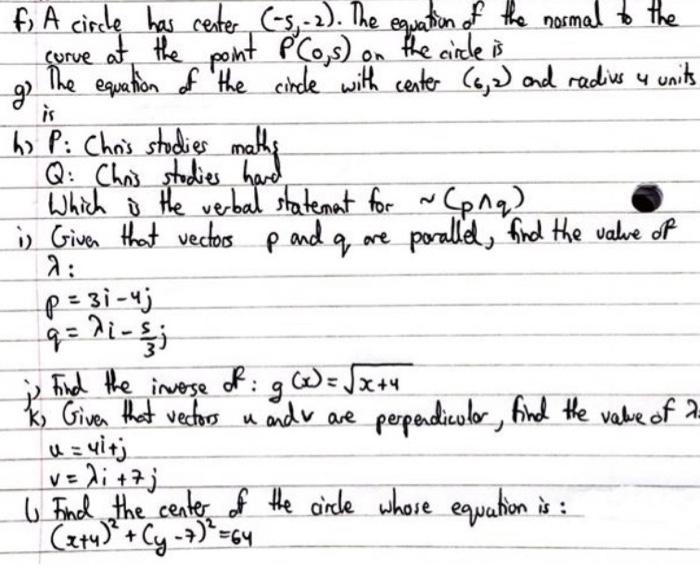 f) A circle has center (-5,-2). The equation of the normal to the
curve at the point P(0,5) on the circle is
g) The equation of the circle with center (6,2) and radius 4 units
is
h) P: Chris studies maths
Q: Chris studies hard
Which is the verbal statement for ~(p∧q)
i) Given that vectors p and q are parallel, find the value of
λ:
p = 3i-4j
q = λi-5/3j
j) Find the inverse of: g(x)=√x+4
k) Given that vectors u and v are perpendicular, find the value of λ
u = 4i+j
v = λi+7j
l) Find the center of the circle whose equation is:
(x+4)²+(y-7)²=64